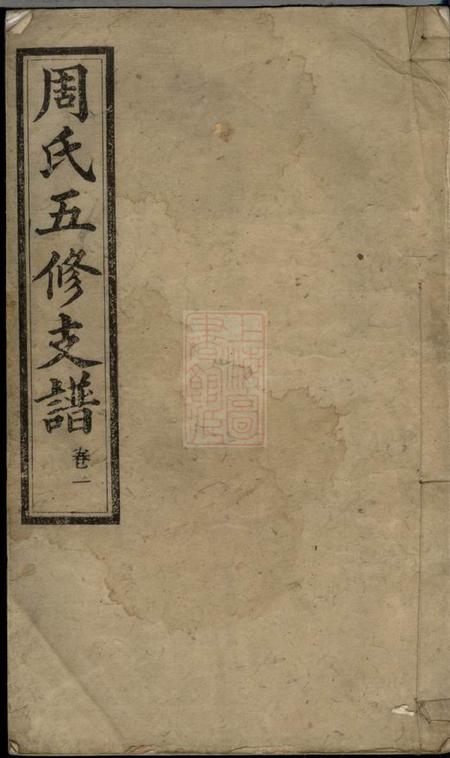 周氏五修支譜
卷一
上海圖
書館藏